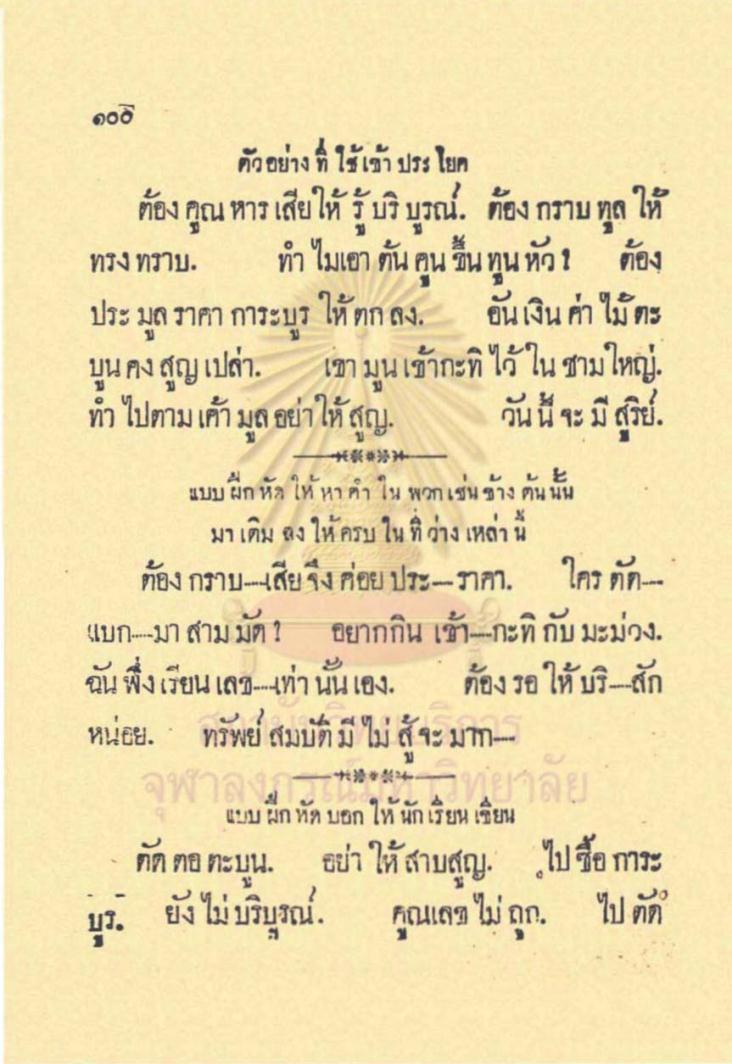 ๑๐๖
ตัวอย่าง ที่ ใช้ เข้า ประ โยค
ต้อง คูณ หาร เสีย ให้ รู้ บริ บูรณ์. ต้อง กราบ ทูล ให้
ทรง ทราบ. ทำ ไมเอา ตัน คูน ขึ้น ทูน หัว ? ต้อง
ประ มูล ราคา การะบูร ให้ ตก ลง. อัน เงิน ค่า ไม้ ตะ
บูน คง สูญ เปล่า. เขา มูน เข้ากะทิ ไว้ ใน ชาม ใหญ่.
ทำ ไปตาม เค้า มูล อย่า ให้ สูญ. วัน นี้ จะ มี สูริย์.
แบบ ฝึก หัด ให้ หา คำ ใน พวก เช่น ข้าง ต้น นั้น
มา เติม ลง ให้ ครบ ใน ที่ ว่าง เหล่า นี้
ต้อง กราบ---เสีย จึง ค่อย ประ--- ราคา. ใคร ตัด---
แบก---มา สาม มัด ? อยาก กิน เข้า---กะทิ กับ มะม่วง.
ฉัน พึ่ง เรียน เลข---เท่า นั้น เอง. ต้อง รอ ให้ บริ---สัก
หน่อย. ทรัพย์ สมบัติ มี ไม่ สู้ จะ มาก---
แบบ ฝึก หัด บอก ให้ นัก เรียน เขียน
ตัด ตอ ตะบูน. อย่า ให้ สาบสูญ. ไป ซื้อ การะ
บูร. ยัง ไม่ บริบูรณ์. คูณเลข ไม่ ถูก. ไป ตัด
สถาบันวิทยบริการ
จุฬาลงกรณ์มหาวิทยาลัย